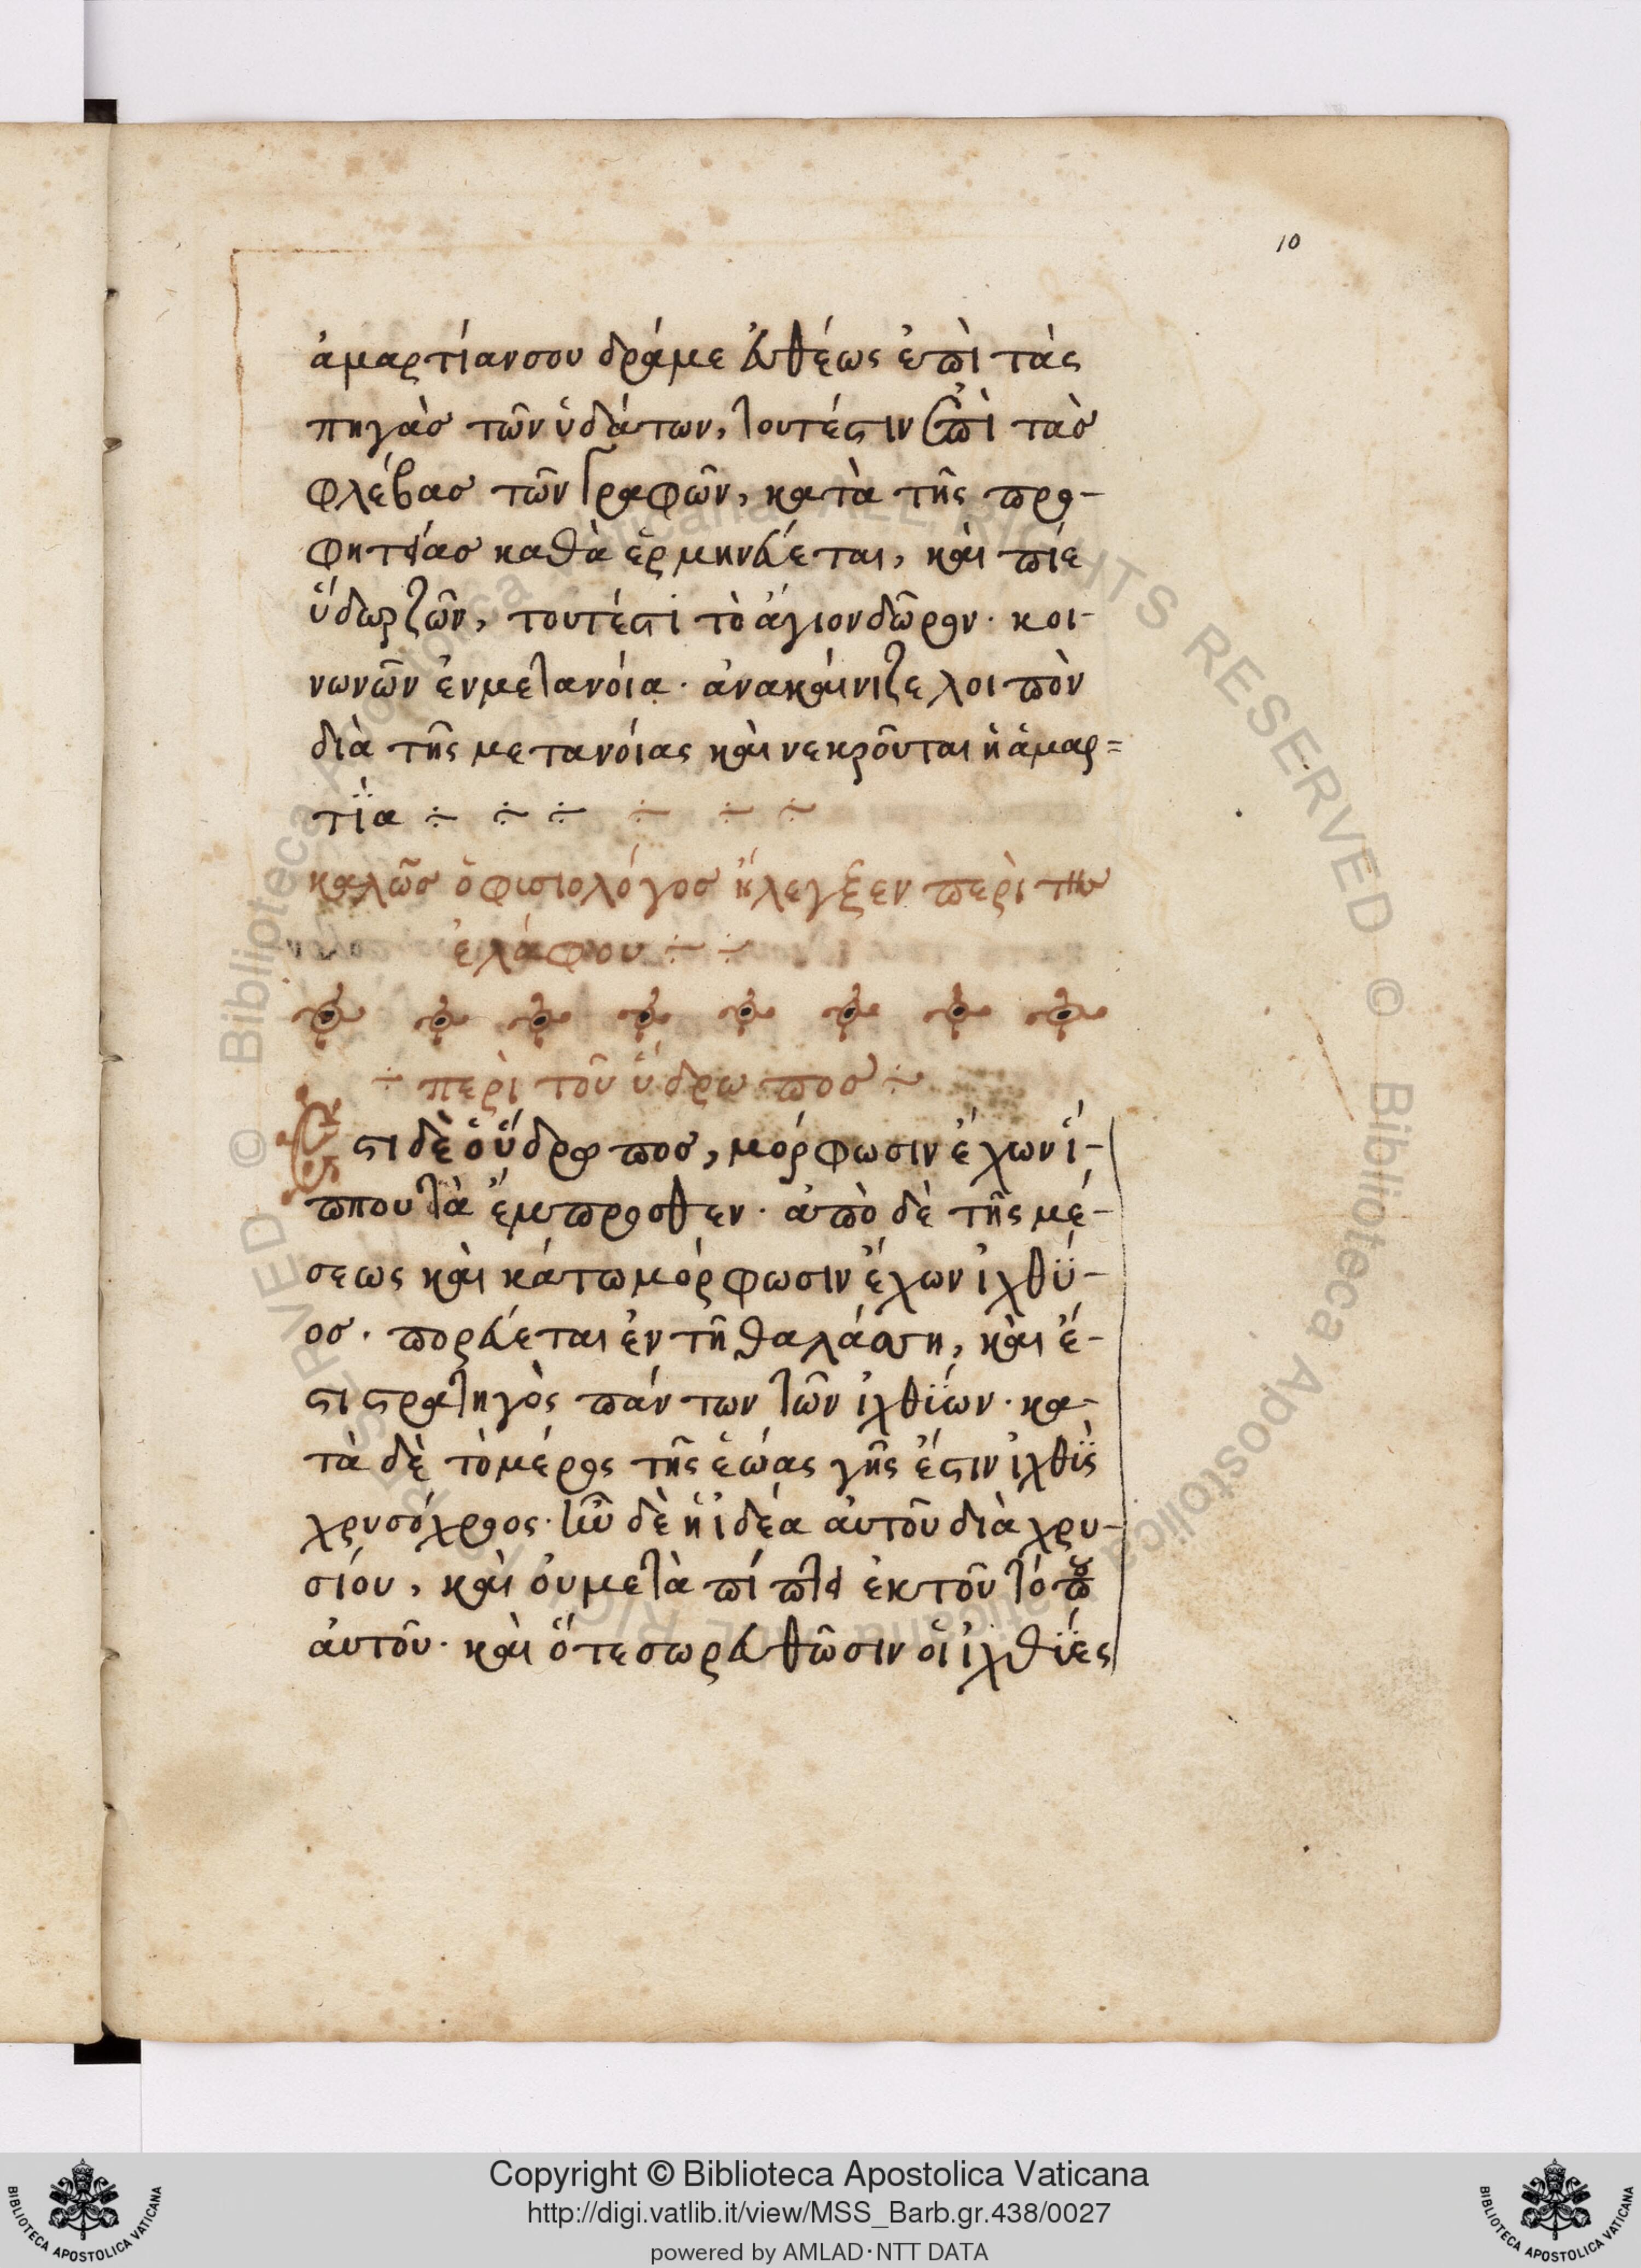 10
ἁμαρτίαν σου δράμε εὐθέως ἐπὶ τὰς
πηγὰσ τῶν ὑδάτων, τουτέστιν ἐπὶ τὰσ
φλέβασ τῶν γραφῶν, κατὰ τῆς προ-
φητείασ καθὰ ἑρμηνεύεται, καὶ πίε
ὕδωρ ζῶν, τουτέστι τὸ ἅγιον δῶρον· κοι-
νωνῶν ἐν μετανόια· ἀνακαίνιζε λοιπὸν
διὰ τῆς μετανόίας καὶ νεκροῦται ἡ ἁμαρ=
τΐα
καλῶσ ὁ φισιολόγοσ ἤλεγξεν περὶ τῆσ
ἐλάφου
περὶ τοῦ ὕδρωποσ
Ἔστι δὲ ὁ ὕδρωποσ, μόρφωσιν ἔχων ἵ-
ππου τὰ ἔμπροσθεν· ἀπὸ δὲ τῆς μέ-
σεως καὶ κάτω μόρφωσιν ἔχων ἰχθύ-
οσ· πορεύεται ἐν τῆ θαλάσση, καὶ ἔ-
στι στρατηγὸς πάντων τῶν ἰχθΐων· κα-
τὰ δὲ τὸ μέρος τῆς ἑώας γῆς ἔστιν ἰχθῒς
χρυσόχροος· ἦν δὲ ἡ ἰδέα ἀυτοῦ διὰ χρυ-
σίου, καὶ ὀυ μεταπίπτει ἐκ τοῦ τόπου
ἀυτοῦ· καὶ ὅτε σωρευθῶσιν οἱ ἰχθΐες
Copyright © Biblioteca Apostolica Vaticana
http://digi.vatlib.it/view/MSS_Barb.gr.438/0027
powered by AMLAD·NTT DATA
BIBLIOTECA APOSTOLICA VATICANA
BIBLIOTECA APOSTOLICA VATICANA